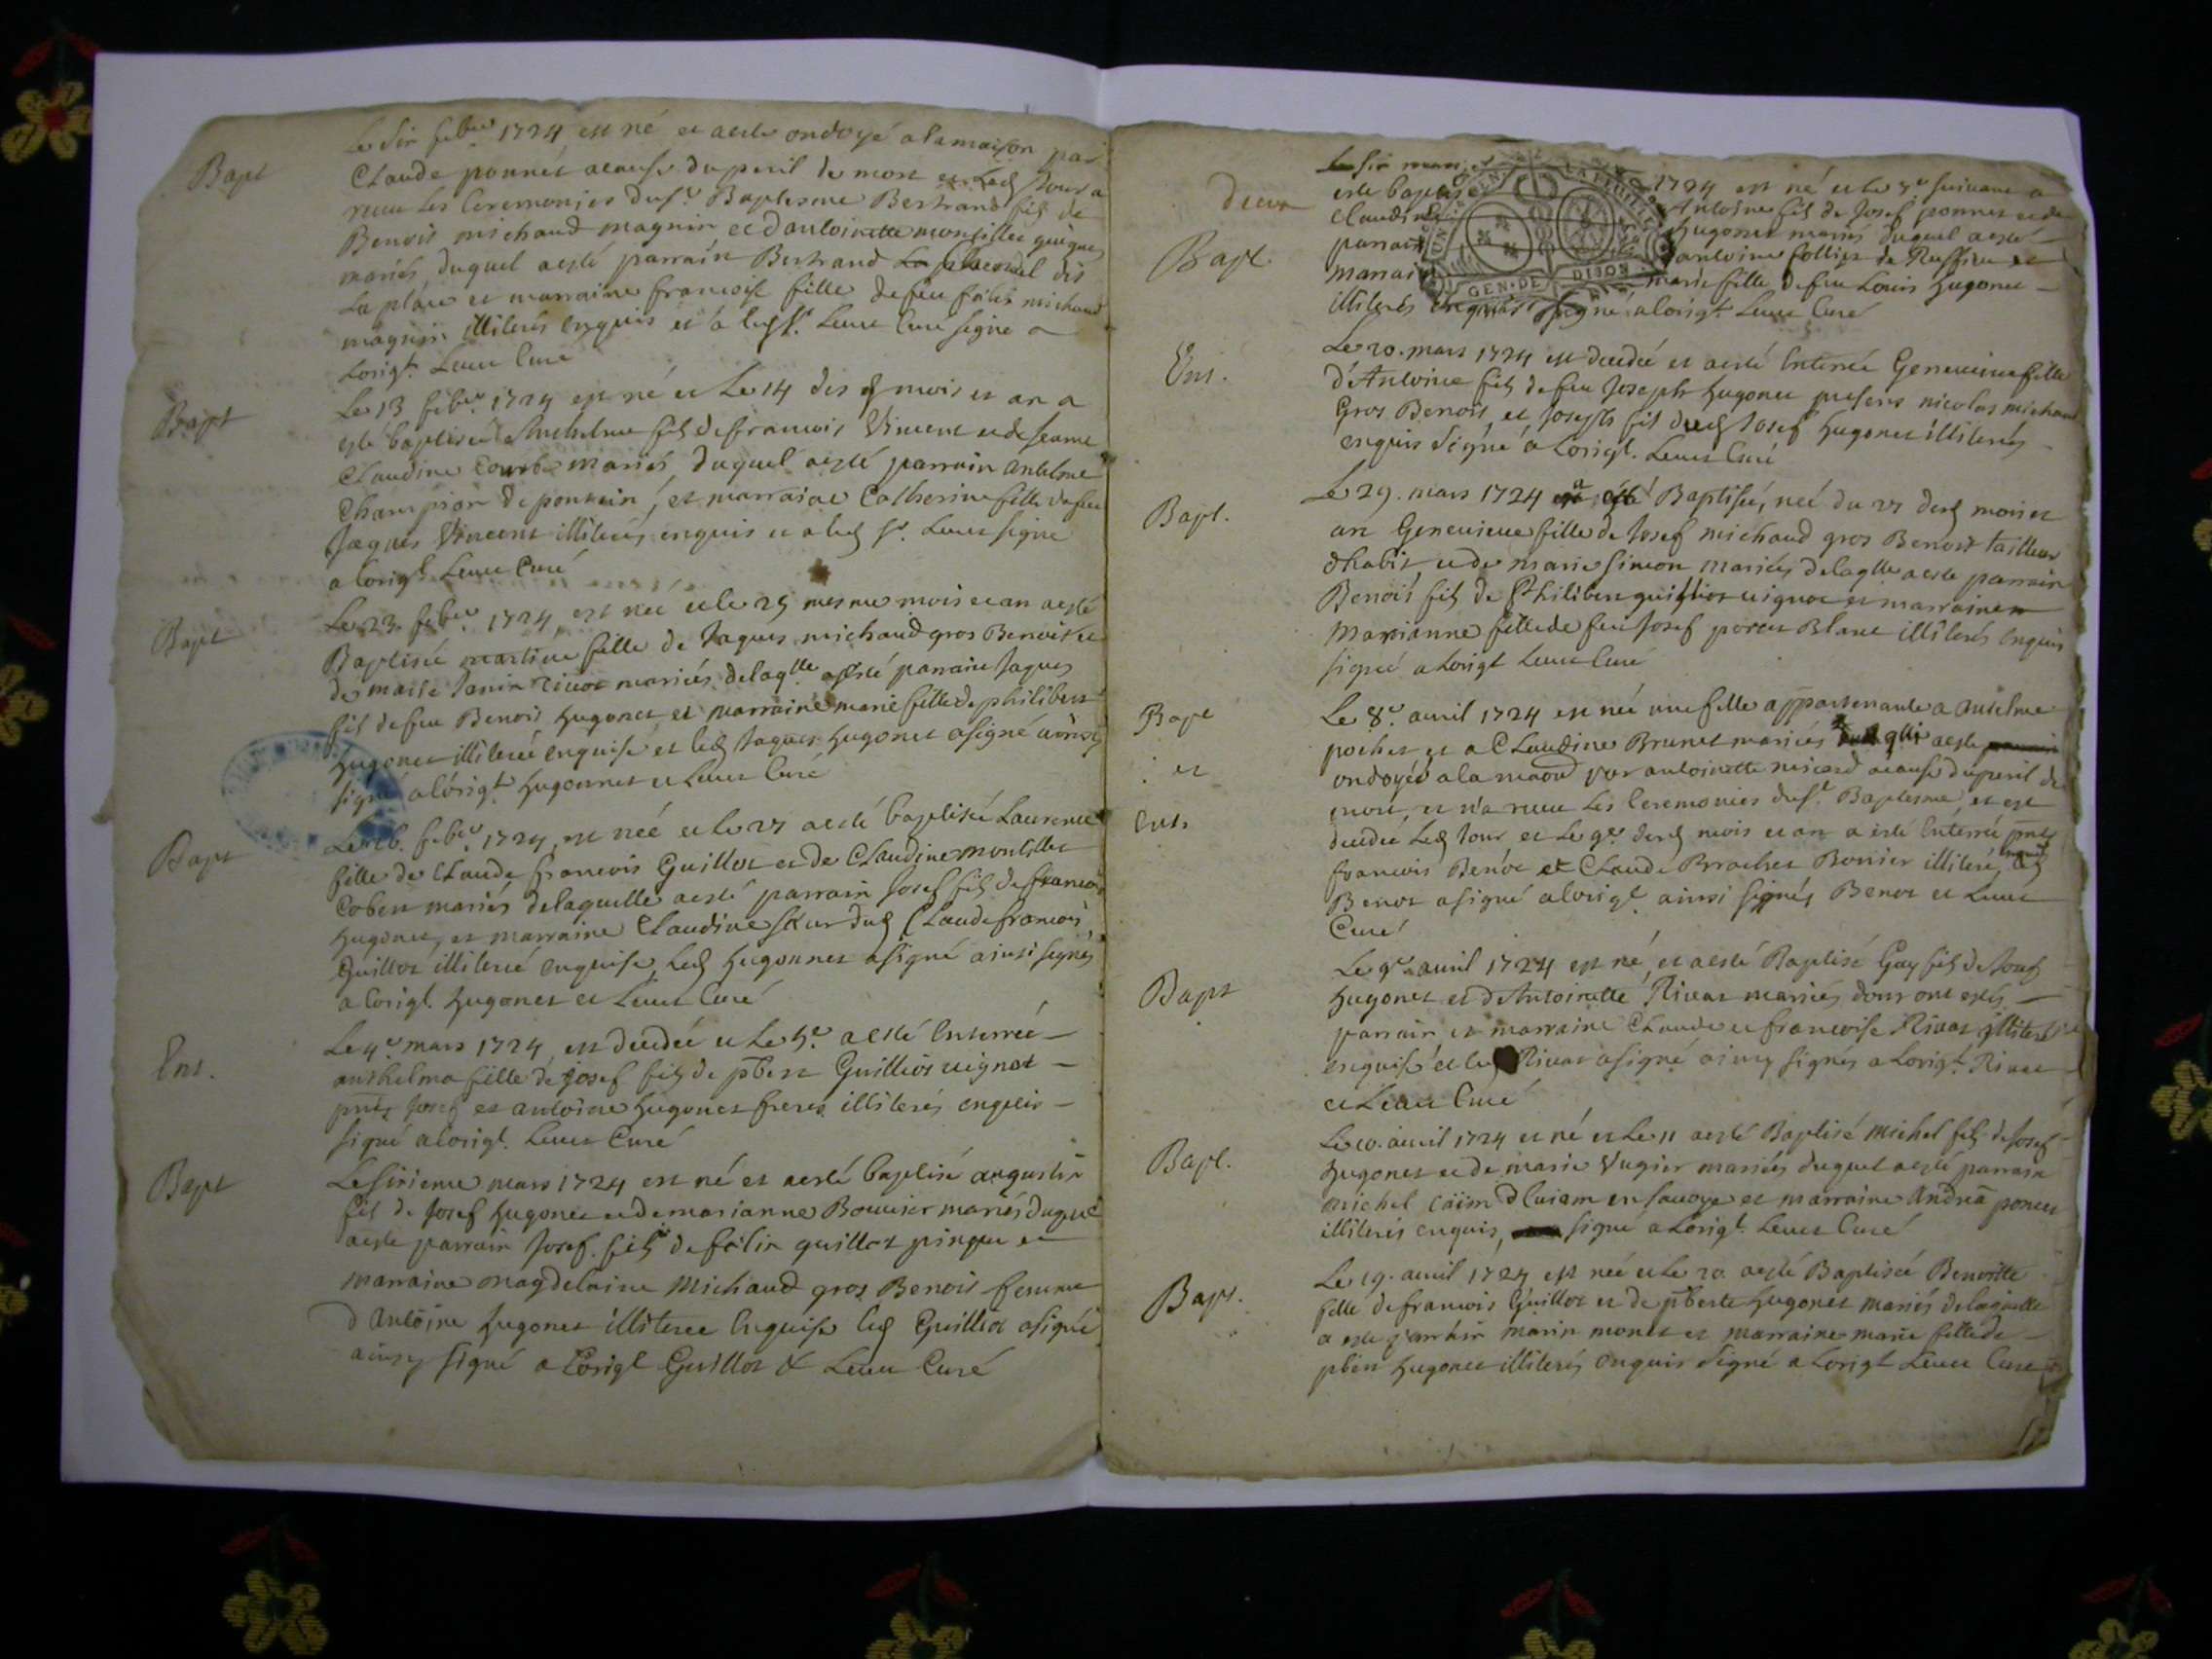 Bapt
Le six feb.er 1724 est né et a esté ondoyé a la maison par
Claude ponnet a cause du peril de mort et Led jour a
receu les Ceremonies du s.t Baptesme Bertrand fils de
Benoit michaud magnin et d'antoinette montillet guigue
mariés, duquel a esté parrain Bertrand dit
La place et marraine francoise fille de feu felix michaud
magnin illiterés enquis et a led s.r Leuu Cure signe a
Lorig.l Leuu Curé
Bapt
Le 13 feb.er 1724 est né et Le 14 des d mois et an a
esté baptisé Anthelme fils de francois Vincent et de jeanne
Claudine mariés, duquel a esté parrain antelme
Champion de poncin, et marraine Catherine fille de feu
Jaques Vincent illiterés enquis et a led s.r Leuu signe
a lorigl Leuu Curé
Bapt
Le 23 feb.er 1724, est née et le 25 mesme mois et an a esté
Baptisée martine fille de Jaques michaud gros Benoit et
de marie Janin mariés delaq.lle a esté parrain Jaques
fils de feu Benoit hugonet et marraine marie fille de philibert
hugonet illiterée enquise et led Jaques hugonet a signé ainsi
signé a lorig.l hugonnet et Leuu Curé
Bapt
Le 26. feb.er 1724, est née et le 27 a esté baptisée Laurence
fille de Claude francois Guillot et de Claudine montillet
Cobert mariés delaquelle a esté parrain Josef fils de francois
hugonet, et marraine Claudine sœur dud Claude francois
Guillot illiterée enquise, Led hugonnet a signé ainsi signés
a lorigl. hugonet et Leuu Curé
Ent.
Le 4.e mars 1724, est decedée et Le 5.e a esté Enterrée
anthelma fille de Josef fils de pbert Guilliot uignot
pnts Josef et antoine hugonet freres illiterés enquis
signé a lorigl. Leuu Curé
Bapt
Le sixieme mars 1724 est né et a esté baptisé augustin
fils de Josef hugonet et de marianne Bouuier mariés duquel
a esté parrain Josef fils de felix guillot pingon et
marraine magdelaine michaud gros Benoit femme
d'Antoine hugonet illiteree Enquise led Guilliot a signé
ainsy signé a Lorigl Guillot & Leuu Curé
Deux
Bapt.
Le six mars 1724 est né et Le 7.e suiuant a
esté baptisé Antoine fils de Josef ponnet et de
Claudine hugonet mariés duquel a esté
parrain antoine follier de Ruffieu et
marraine marie fille de feu Louis hugonet
illiterés enquis signé a lorigt Leuu Curé
GEN. DE DIJON
Ent.
Le 20. mars 1724 est decedée et a esté Enterrée Geneuieue fille
d'Antoine fils de feu Joseph hugonet presens nicolas michaud
Gros Benoit, et Joseph fils dud Josef hugonet illiterés
enquis signé a Lorigl. Leuu Curé
Bapt.
Le 29. mars 1724 a esté Baptisée, née du 27 desd mois et
an Geneuieue fille de Josef michaud gros Benoit tailleur
d'habit et de marie simon mariés delaqlle a esté parrain
Benoit fils de Philibert guilliot uignot et marraine
Marianne fille de feu Josef poncet Blanc illiterés Enquis
signé a Lorigl Leuu Curé
Bapt
et
Ent.
Le 8.e auril 1724 est née une fille appartenante a antelme
pochet et a Claudine Brunet mariés a esté
ondoyée a la maison par antoinette a cause du peril de
mort, et n'a receu les Ceremonies du s.t Baptesme, et est
decedee Led Jour, et Le 9.e desd mois et an a esté Enterrée pnts
francois Benot et Claude Brachet Bonier illiteré, led
Benot a signé a lorigl ainsi signés Benot et Leuu
Curé
Bapt
Le 9.e auril 1724 est né, et a esté Baptisé Guy fils de Josef
hugonet et d'Antoinette Riuat mariés dont ont estés
parrain et marraine Claude et francoise Riuat illiteré
enquise et led Riuat a signé ainsy signés a Lorig.l Riuat
et Leuu Curé
Bapt.
Le 10. auril 1724 est né et Le 11 a esté Baptisé Michel fils de Josef
hugonet et de marie Vugier mariés duquel a esté parrain
michel en sauoye et marraine Andrea poncet
illiterés enquis, signé a Lorigl. Leuu Curé
Bapt.
Le 19. auril 1724 est née et Le 20. a esté Baptisée Benoitte
fille de francois Guillot et de pberte hugonet mariés delaquelle
a esté parrain marin monet et marraine marie fille de
pbert hugonet illiterés Enquis signé a Lorigl Leuu Curé